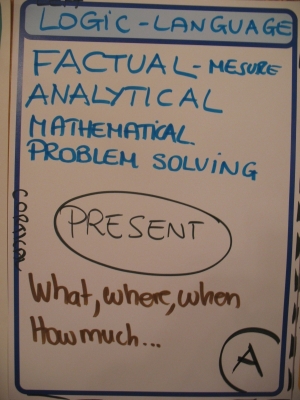 LOGIC - LANGUAGE
FACTUAL - MESURE
ANALYTICAL
MATHEMATICAL
PROBLEM SOLVING
PRESENT
What, where, when
How much...
A